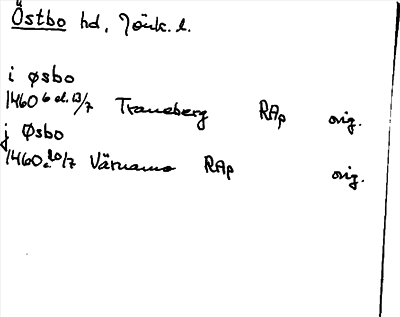 Östbo hd, Jönk. l.
i øsbo
1460 6 el. 13/7 Traneberg RAp orig.
j Øsbo
1460 20/7 Värnamo RAp orig.